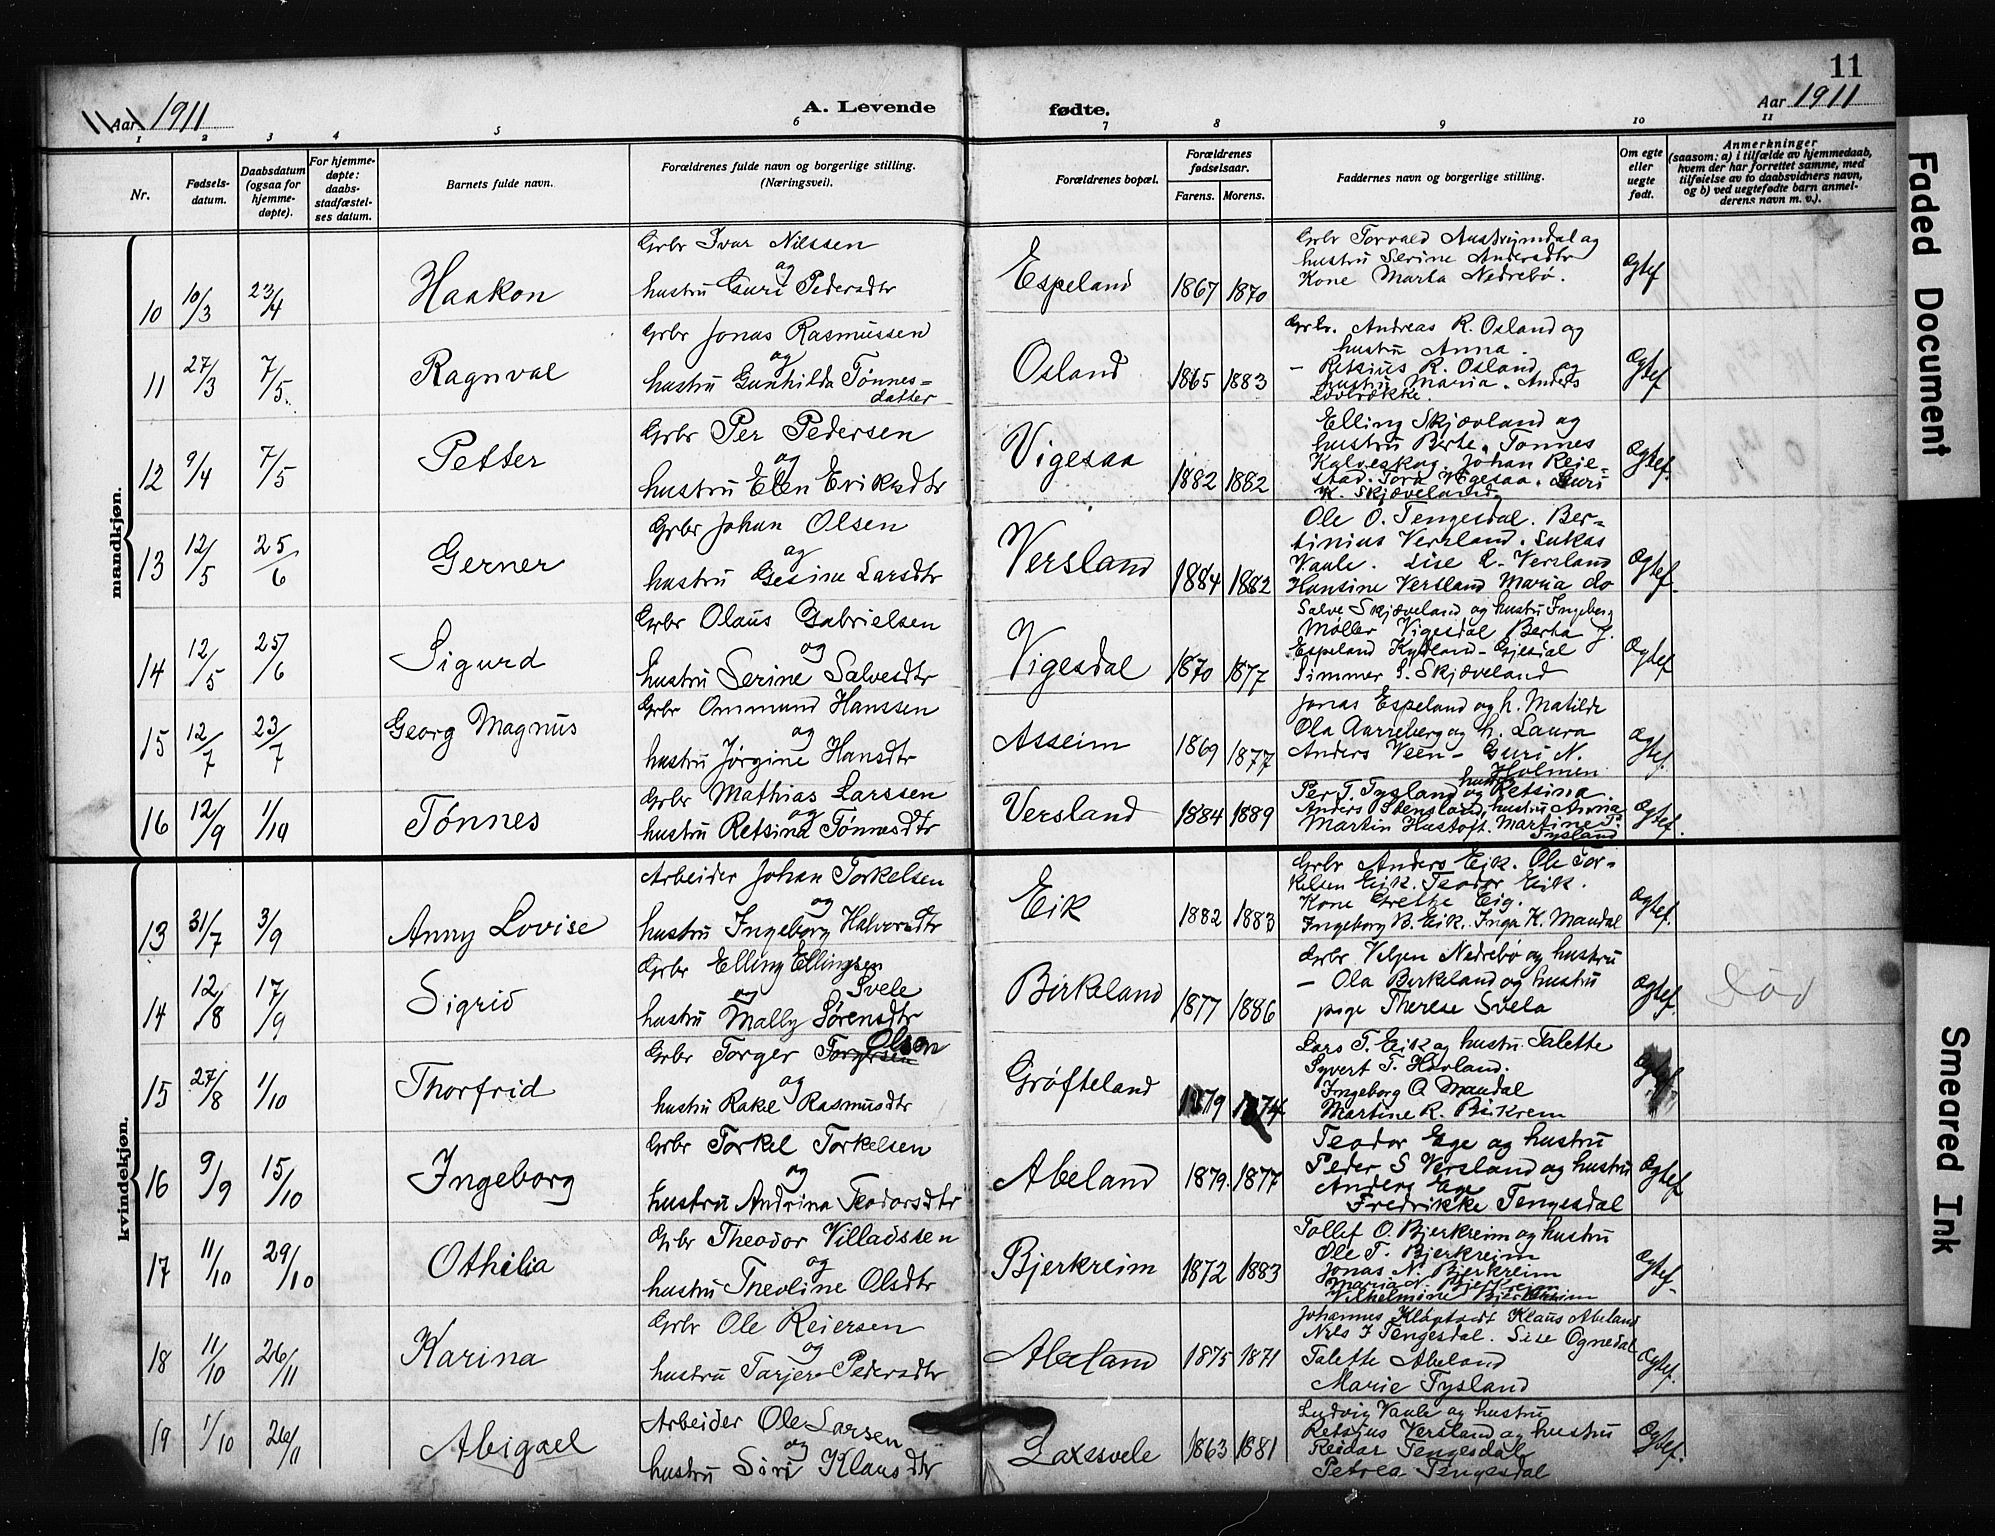 11
Aar 1911 A. Levende fødte. Aar 1911
1 2 3 4 5 6 7 8 9 10 11
Nr. Fødsels-datum. Daabsdatum (ogsaa for hjemme-døpte). For hjemme-døpte: daabs-stadfæstel-ses datum. Barnets fulde navn. Forældrenes fulde navn og borgerlige stilling. (Næringsvei). Forældrenes bopæl. Forældrenes fødselsaar. Farens. Morens. Faddernes navn og borgerlige stilling. Om egte eller uegte født. Anmerkninger (saasom: a) i tilfælde av hjemmedaab, hvem der har forrettet samme, med tilføielse av to daabsvidners navn, og b) ved uegtefødte barn anmel-derens navn m. v.).
mandkjøn.
10 10/3 23/4 Haakon
Grbr Ivar Nilssen
og
hustru Guri Pedersdtr
Espeland 1867 1870
Grbr Torvald Austrumdal og
hustru Serine Andersdtr
Kone Marta Nedrebø.
Ægtef
11 27/3 7/5 Ragnval
Grbr Jonas Rasmussen
og
hustru Gunhilda Tønnes=
datter
Osland 1865 1883
Grbr. Andreas R. Osland og
hustru Anna.
— Retsius R. Osland og
hustru Maria. Anders
Ægtef
12 9/4 7/5 Petter
Grbr Per Pedersen
og
hustru Elen Eriksdtr
Vigesaa 1882 1882
Elling Skjævland og
hustru Berte. Tønnes
Kalveskog. Johan Reie-
stad. Tora Vigesaa. Guri
K. Skjæveland
Ægtef.
13 12/5 25/6 Gerner
Grbr Johan Olsen
og
hustru Gesine Larsdtr
Versland 1884 1882
Ole O. Tengesdal. Ber-
tinius Versland. Lukas
Vaule. Lise L. Versland
Hansine Versland Maria do
Ægtef.
14 12/5 25/6 Sigurd
Grbr Olaus Gabrielsen
og
hustru Serine Salvesdtr
Vigesdal 1870 1877
Salve Skjæveland og hustru Ingeborg
Møller Vigesdal Berta J.
Espeland Kydland - Gjesdal
Simmer S. Skjæveland
Ægtef
15 12/7 23/7 Georg Magnus
Grbr Ommund Hanssen
og
hustru Jørgine Hansdtr
Asseim 1869 1877
Jonas Espeland og h. Matilde
Ola Aarreberg og h. Laura
Anders Veen - Guri N.
Holmen
Ægtef.
16 12/9 1/10 Tønnes
Grbr Mathias Larssen
og
hustru Retsine Tønnesdtr
Versland 1884 1889
Per T. Tysland og hustru Retsina.
Anders Stensland, hustru Anna
Martin Hustoft. Martine T.
Tysland
Ægtef.
kvindekjøn.
13 31/7 3/9 Anny Lovise
Arbeider Johan Torkelsen
og
hustru Ingeborg Halvorsdtr
Eik 1882 1883
Grbr Anders Eik. Ole Tor-
kelsen Eik. Teodor Eik.
Kone Grethe Eig.
Ingeborg B. Eik. Inga K. Maudal
Ægtef.
14 12/8 17/9 Sigrid
Grbr Elling Ellingsen
og Svele
hustru Mally Sørensdtr
Birkeland 1877 1886
Grbr Veljen Nedrebø og hustru
— Ola Berkeland og hustru
pige Therese Svela
Ægtef.
Død
15 27/8 1/10 Thorfrid
Grbr Torger Torgersen Olsen
og
hustru Rakel Rasmusdtr
Grøfteland 1879 1874
Lars T. Eik og hustru Talette
Syvert T. Hovland.
Ingeborg O. Maudal
Martine R. Birkrem
Ægtef
16 9/9 15/10 Ingeborg
Grbr Torkel Torkelsen
og
hustru Andrina Teodorsdtr
Abeland 1879. 1877
Teodor Ege og hustru
Peder S Versland og hustru
Anders Ege
Fredrikke Tengesdal
Ægtef
17 11/10 29/10 Othilia
Grbr Theodor Villadssen
og
hustru Theoline Olsdtr
Bjerkreim 1872 1883
Tollef O. Bjerkreim og hustru
Ole T. Bjerkreim
Jonas N. Bjerkreim
Maria N. Bjerkreim
Vilhelmine Bjerkreim
Ægtef.
18 11/10 26/11 Karina
Grbr Ole Reiersen
og
hustru Tarjer Pedersdtr
Abeland 1875 1871
Johannes Kløgtvedt Klaus Abeland
Nils J Tengesdal. Sise Ognedal
Talette Abeland
Marie Tysland
Ægtef.
19 1/10 26/11 Abigael
Arbeider Ole Larsen
og
hustru Siri Klausdtr
Laxesvele 1863 1881
Ludvig Vaule og hustru
Retsius Versland og hustru
Reidar Tengesdal
Petrea Tengesdal
Ægtef.
Faded Document
Smeared Ink